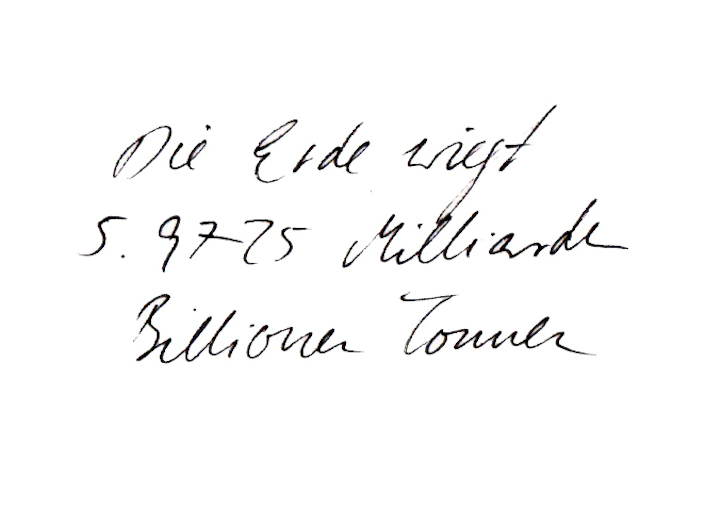 Die Erde wiegt
5.9725 Milliarden
Billionen Tonnen